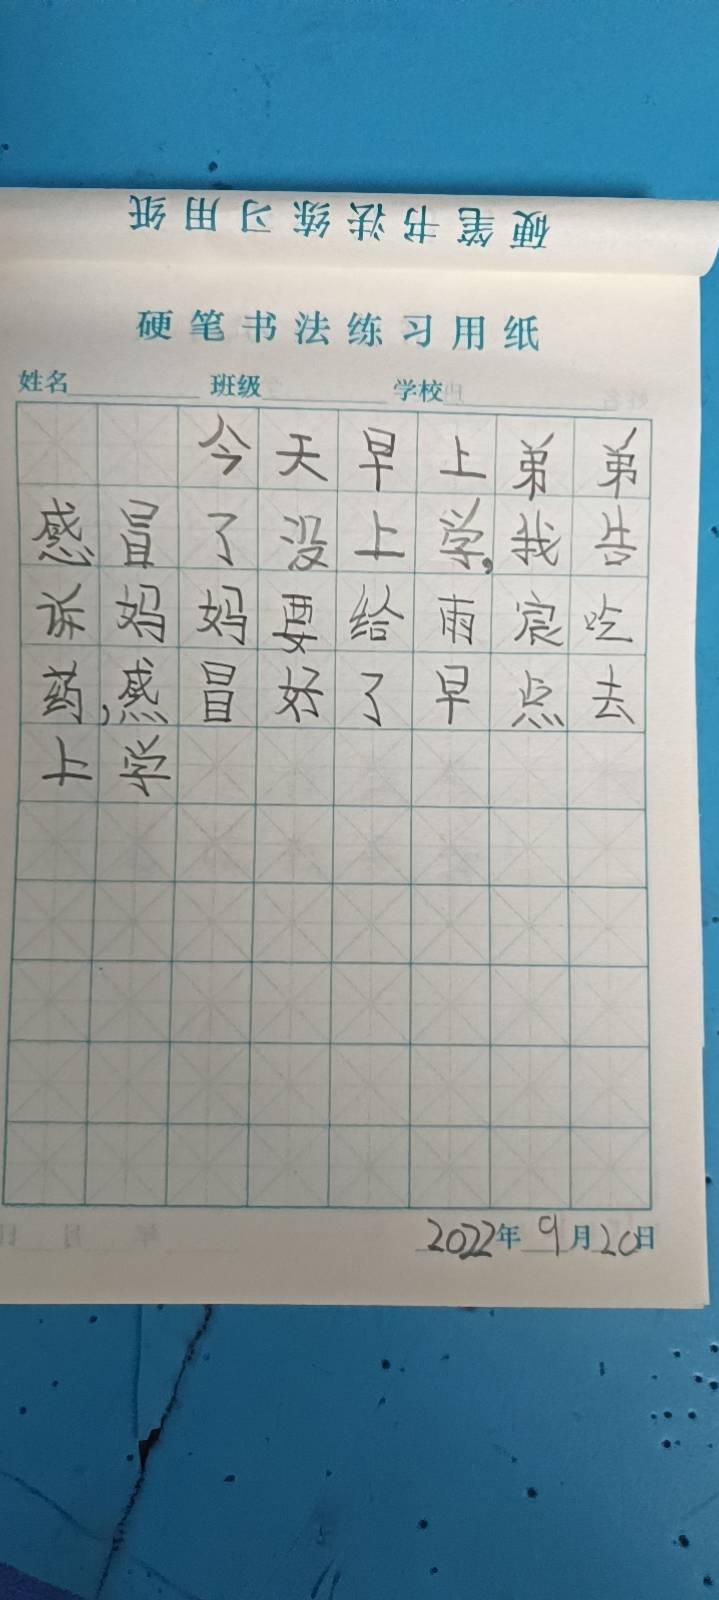 硬笔书法练习用纸
硬笔书法练习用纸
姓名 班级 学校
今天早上弟弟
感冒了没上学,我告
诉妈妈要给雨宸吃
药,感冒好了早点去
上学
2022年9月20日